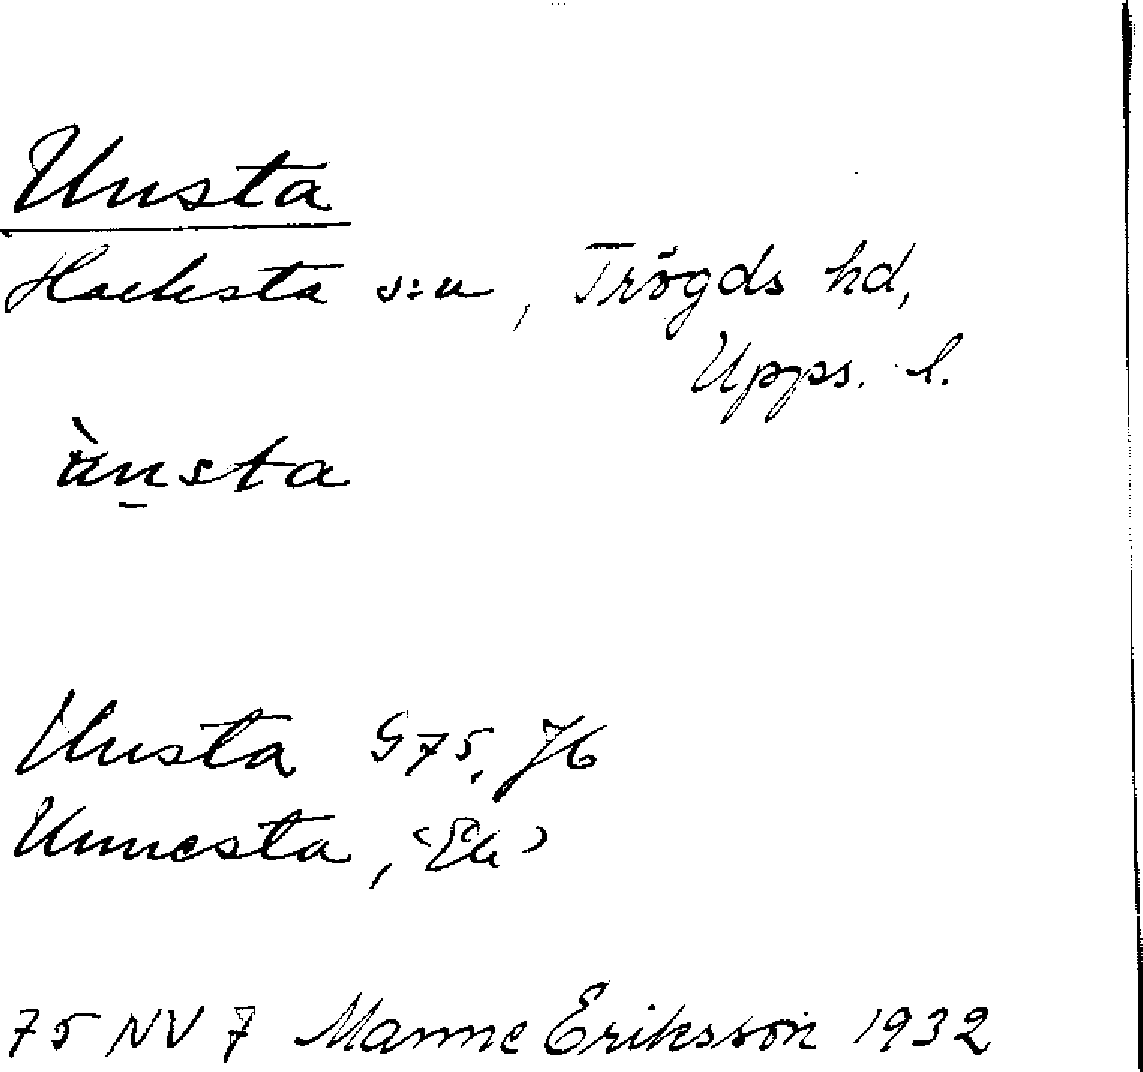 Unsta
Hacksta s:n, Trögds hd,
Upps. l.
ùn̠sta
Unsta G75, J6
Unnesta, (Ek)
75 NV 7 Manne Eriksson 1932